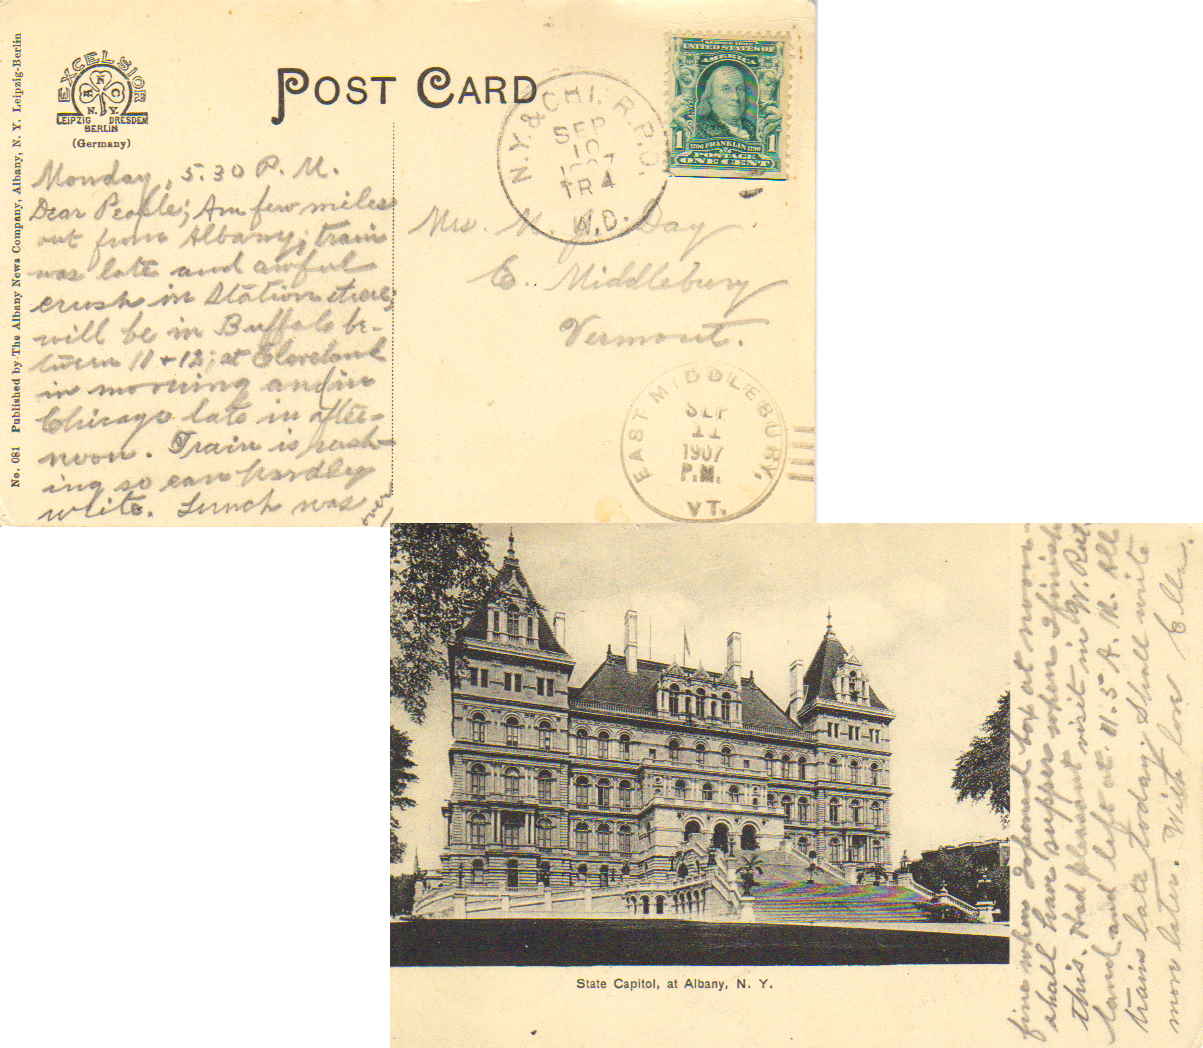 No. 081   Published by The Albany News Company, Albany, N. Y.  Leipzig-Berlin
EXCELSIOR
A N C
N. Y.
LEIPZIG DRESDEN
BERLIN
(Germany)
POST CARD
N.Y. & CHI. R.P.O.
SEP
10
1907
TR 4
W.D.
UNITED STATES OF
AMERICA
1 1
FRANKLIN
POSTAGE
ONE CENT
Monday, 5.30 P. M.
Dear People; Am few miles
out from Albany; train
was late and awful
crush in Station there;
will be in Buffalo be-
tween 11 + 12; at Cleveland
in morning and in
Chicago late in after-
noon. Train is rush-
ing so can hardly
write. Lunch was
over
Mrs. N. Day
E. Middlebury
Vermont.
EAST MIDDLEBURY,
SEP
11
1907
P.M.
VT.
fine when I opened box at noon-
shall have supper when I finish
this. Had pleasant visit in W. Rut-
land and left at 11.5 A. M. All
trains late today. Shall write
more later. With love Ella.
State Capitol, at Albany, N. Y.